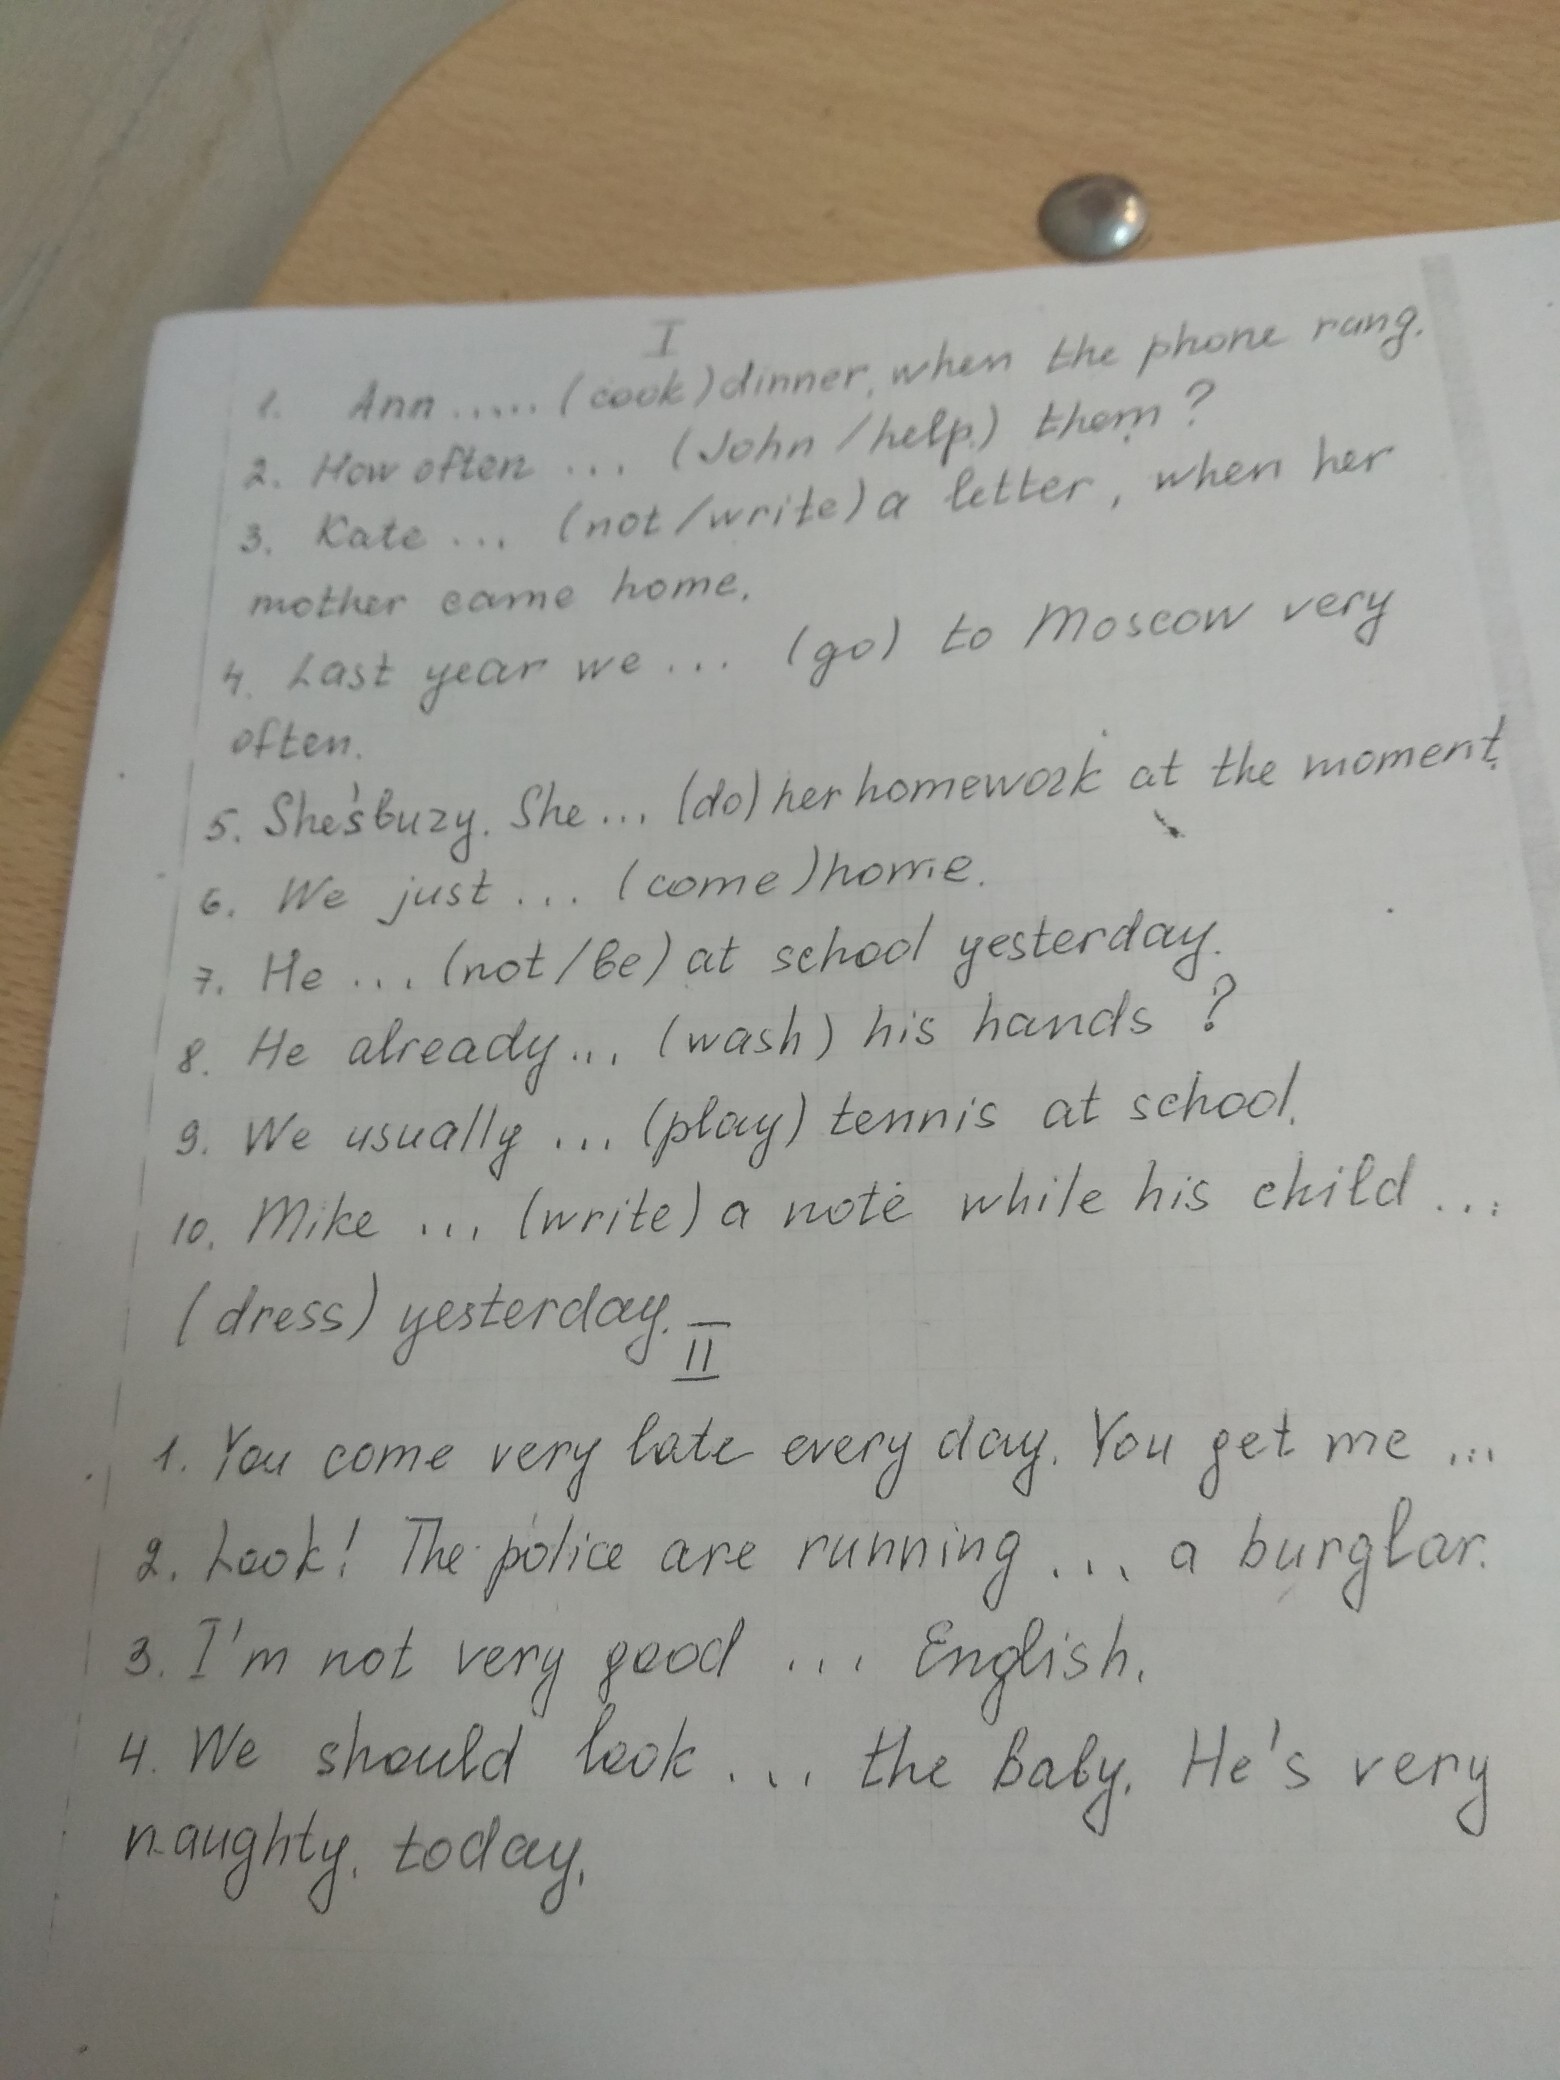 I
1. Ann ..... (cook) dinner, when the phone rang.
2. How often ... (John/help) them?
3. Kate ... (not/write) a letter, when her
mother came home.
4. Last year we ... (go) to Moscow very
often.
5. She's buzy. She ... (do) her homework at the moment.
6. We just ... (come) home.
7. He ... (not/be) at school yesterday.
8. He already ... (wash) his hands?
9. We usually ... (play) tennis at school.
10. Mike ... (write) a note while his child ...
(dress) yesterday.
II
1. You come very late every day. You get me ...
2. Look! The police are running ... a burglar.
3. I'm not very good ... English.
4. We should look ... the baby. He's very
naughty, today.